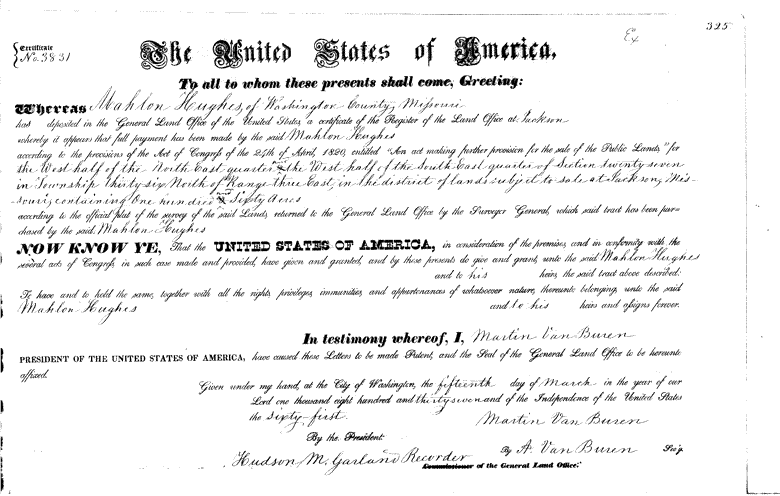 325
Ex
Certificate
No. 3831
The United States of America,
To all to whom these presents shall come, Greeting:
Whereas Mahlon Hughes, of Washington County, Missouri
has deposited in the General Land Office of the United States, a certificate of the Register of the Land Office at Jackson
whereby it appears that full payment has been made by the said Mahlon Hughes
according to the provisions of the Act of Congress of the 24th of April, 1820, entitled "An act making further provision for the sale of the Public Lands," for
the West half of the North East quarter and the West half of the South East quarter of Section twenty seven
in Township thirty six North of Range three East, in the district of lands subject to sale at Jackson, Mis-
souri, containing One hundred and Sixty Acres
according to the official plat of the survey of the said Lands, returned to the General Land Office by the Surveyor General, which said tract has been pur-
chased by the said Mahlon Hughes
NOW KNOW YE, That the UNITED STATES OF AMERICA, in consideration of the premises, and in conformity with the
several acts of Congress, in such case made and provided, have given and granted, and by these presents do give and grant, unto the said Mahlon Hughes
and to his heirs, the said tract above described:
To have and to hold the same, together with all the rights, privileges, immunities, and appurtenances of whatsoever nature, thereunto belonging, unto the said
Mahlon Hughes and to his heirs and assigns forever.
In testimony whereof, I, Martin Van Buren
PRESIDENT OF THE UNITED STATES OF AMERICA, have caused these Letters to be made Patent, and the Seal of the General Land Office to be hereunto
affixed.
Given under my hand, at the City of Washington, the fifteenth day of March in the year of our
Lord one thousand eight hundred and thirty seven and of the Independence of the United States
the sixty-first.
Martin Van Buren
By the President:
By A. Van Buren Sec'y.
Hudson M. Garland Recorder
Commissioner of the General Land Office.